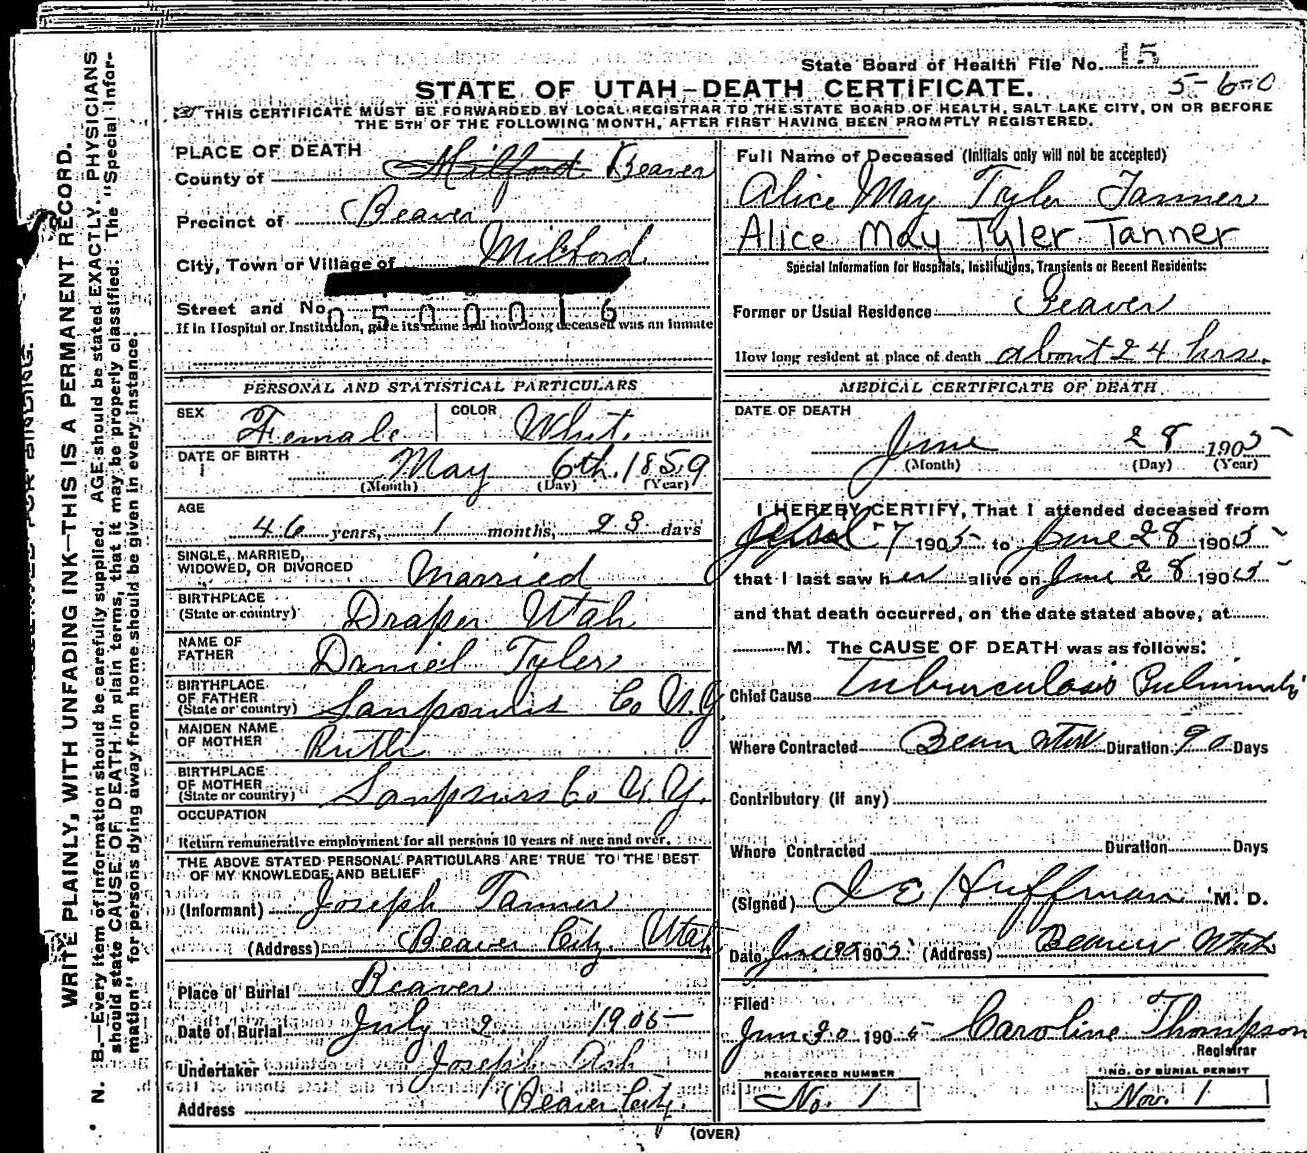 State Board of Health File No. 15
5-6-0
STATE OF UTAH—DEATH CERTIFICATE.
THIS CERTIFICATE MUST BE FORWARDED BY LOCAL REGISTRAR TO THE STATE BOARD OF HEALTH, SALT LAKE CITY, ON OR BEFORE
THE 5TH OF THE FOLLOWING MONTH, AFTER FIRST HAVING BEEN PROMPTLY REGISTERED.
WRITE PLAINLY, WITH UNFADING INK—THIS IS A PERMANENT RECORD.
N. B.—Every item of information should be carefully supplied. AGE should be stated EXACTLY. PHYSICIANS
should state CAUSE OF DEATH in plain terms, that it may be properly classified. The "Special Infor-
mation" for persons dying away from home should be given in every instance.
PLACE OF DEATH
County of Milford Beaver
Precinct of Beaver
City, Town or Village of Milford
Street and No. 0500016
If in Hospital or Institution, give its name and how long deceased was an inmate
PERSONAL AND STATISTICAL PARTICULARS
SEX Female COLOR White
DATE OF BIRTH May 6th 1859
(Month) (Day) (Year)
AGE
46 years, 1 months, 23 days
SINGLE, MARRIED,
WIDOWED, OR DIVORCED Married
BIRTHPLACE
(State or country) Draper Utah
NAME OF
FATHER Daniel Tyler
BIRTHPLACE
OF FATHER
(State or country) Co N.Y.
MAIDEN NAME
OF MOTHER Ruth
BIRTHPLACE
OF MOTHER
(State or country) Co N.Y.
OCCUPATION
Return remunerative employment for all persons 10 years of age and over.
THE ABOVE STATED PERSONAL PARTICULARS ARE TRUE TO THE BEST
OF MY KNOWLEDGE AND BELIEF
(Informant) Joseph Tanner
(Address) Beaver City. Utah
Place of Burial Beaver
Date of Burial July 2 1905
Undertaker Joseph Ash
Address Beaver City.
Full Name of Deceased (Initials only will not be accepted)
Alice May Tyler Tanner
Alice May Tyler Tanner
Special Information for Hospitals, Institutions, Transients or Recent Residents:
Former or Usual Residence Beaver
How long resident at place of death about 24 hrs.
MEDICAL CERTIFICATE OF DEATH
DATE OF DEATH
June 28 1905
(Month) (Day) (Year)
I HEREBY CERTIFY, That I attended deceased from
7 1905 to June 28 1905
that I last saw her alive on June 28 1905
and that death occurred, on the date stated above, at
M. The CAUSE OF DEATH was as follows:
Chief Cause Tuberculosis
Where Contracted Beaver Utah Duration 90 Days
Contributory (if any)
Where Contracted Duration Days
(Signed) Huffman M. D.
Date June 1905 (Address) Beaver Utah
Filed
June 30 1905 Caroline Thompson
Registrar
REGISTERED NUMBER
No. 1
NO. OF BURIAL PERMIT
1
(OVER)